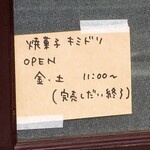 焼菓子 キミドリ
OPEN
金・土 11:00~
(完売しだい終了)